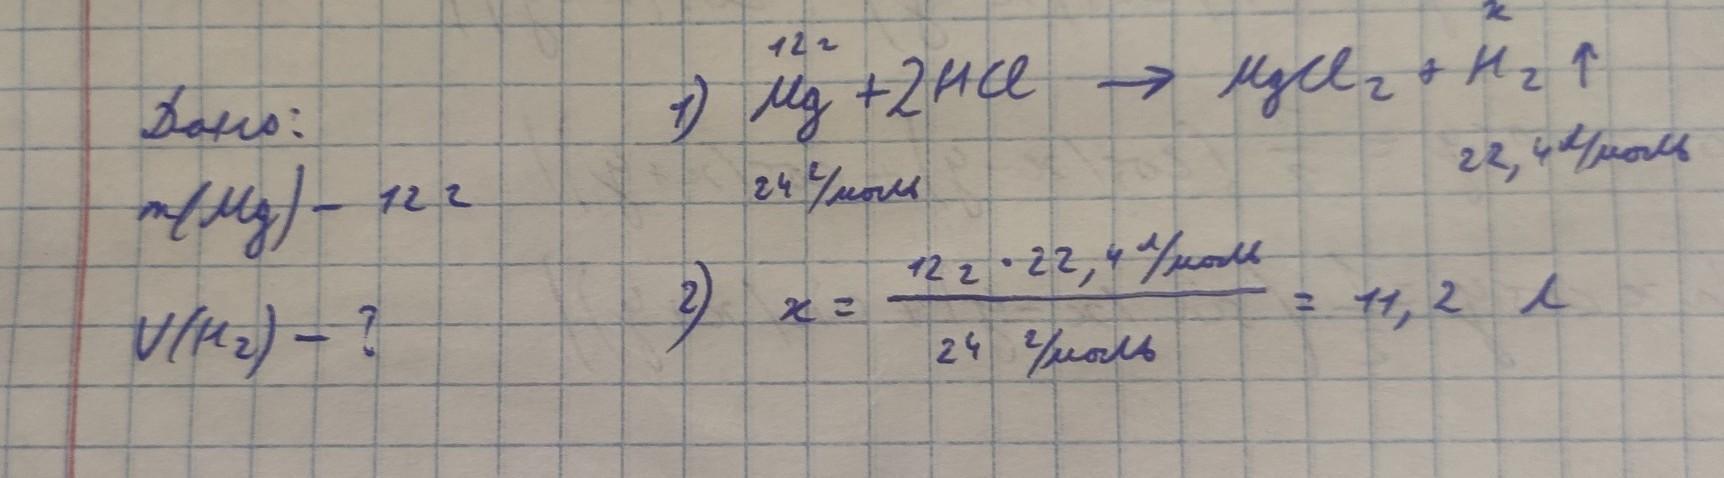 Дано:
m(Mg) – 12 г
V(H₂) – ?
12 г x
1) Mg + 2HCl → MgCl₂ + H₂ ↑
24 г/моль 22,4 л/моль
2) x = 12 г · 22,4 л/моль / 24 г/моль = 11,2 л